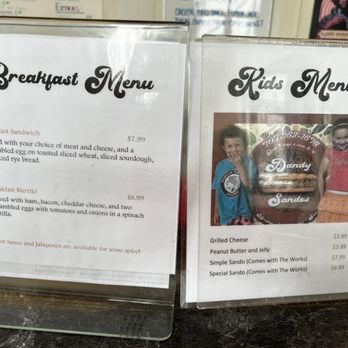 Breakfast Menu
fast Sandwich
$7.99
ed with your choice of meat and cheese, and a
mbled egg on toasted sliced wheat, sliced sourdough,
iced rye bread.
akfast Burrito
$8.99
ved with ham, bacon, cheddar cheese, and two
ambled eggs with tomatoes and onions in a spinach
tilla.
ot Sauce and Jalapenos are available for some spice!
Kids Menu
Dandy
Sandos
Grilled Cheese $3.99
Peanut Butter and Jelly $3.99
Simple Sando (Comes with The Works) $7.99
Special Sando (Comes with The Works) $8.99